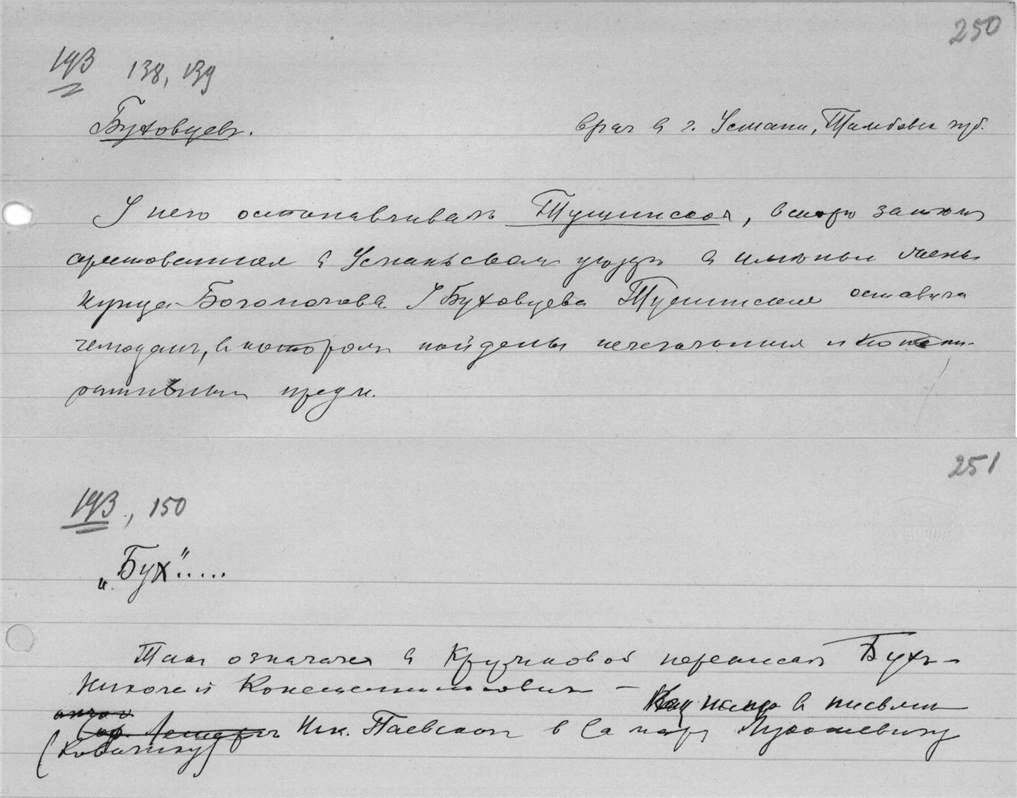 250
193 138, 139
Буховцевъ.
врач в г. Усмани, Тамбовск губ.
У него останавливалъ Тущинской, вскоре затем
арестованная в Усманьском уезде в имении
купца Богомолова У Буховцева Тущинская оставила
чемоданъ, в котором найдены нелегальныя и
предм.
251
193, 150
„Бух".....
Так означался в Кружковой переписке Бухъ-
Николай Константинович —
в письме
Ник. Паевской в Самару Лукашевичу
(Кобылину)